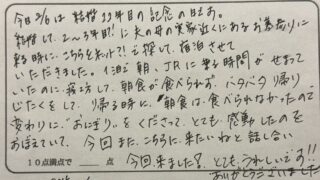 今日2/6は結婚22年目の記念の日です。
結婚して、2〜3年目に夫の母の実家近くにあるお墓参りに
来る時に、こちらをネットで探して、宿泊させて
いただきました。1泊で朝、JRに乗る時間がせまって
いたのに寝坊して、朝食が食べられず、バタバタ帰り
じたくをして、帰る時に、"朝食は、食べられなかったので
変わりに"おにぎり"をくださって、とても、感動したのを
おぼえていて、今回また、こちらに来たいねと話し合い
10点満点で 点 今回来ました!! とても、うれしいです!!
ありがとうございました